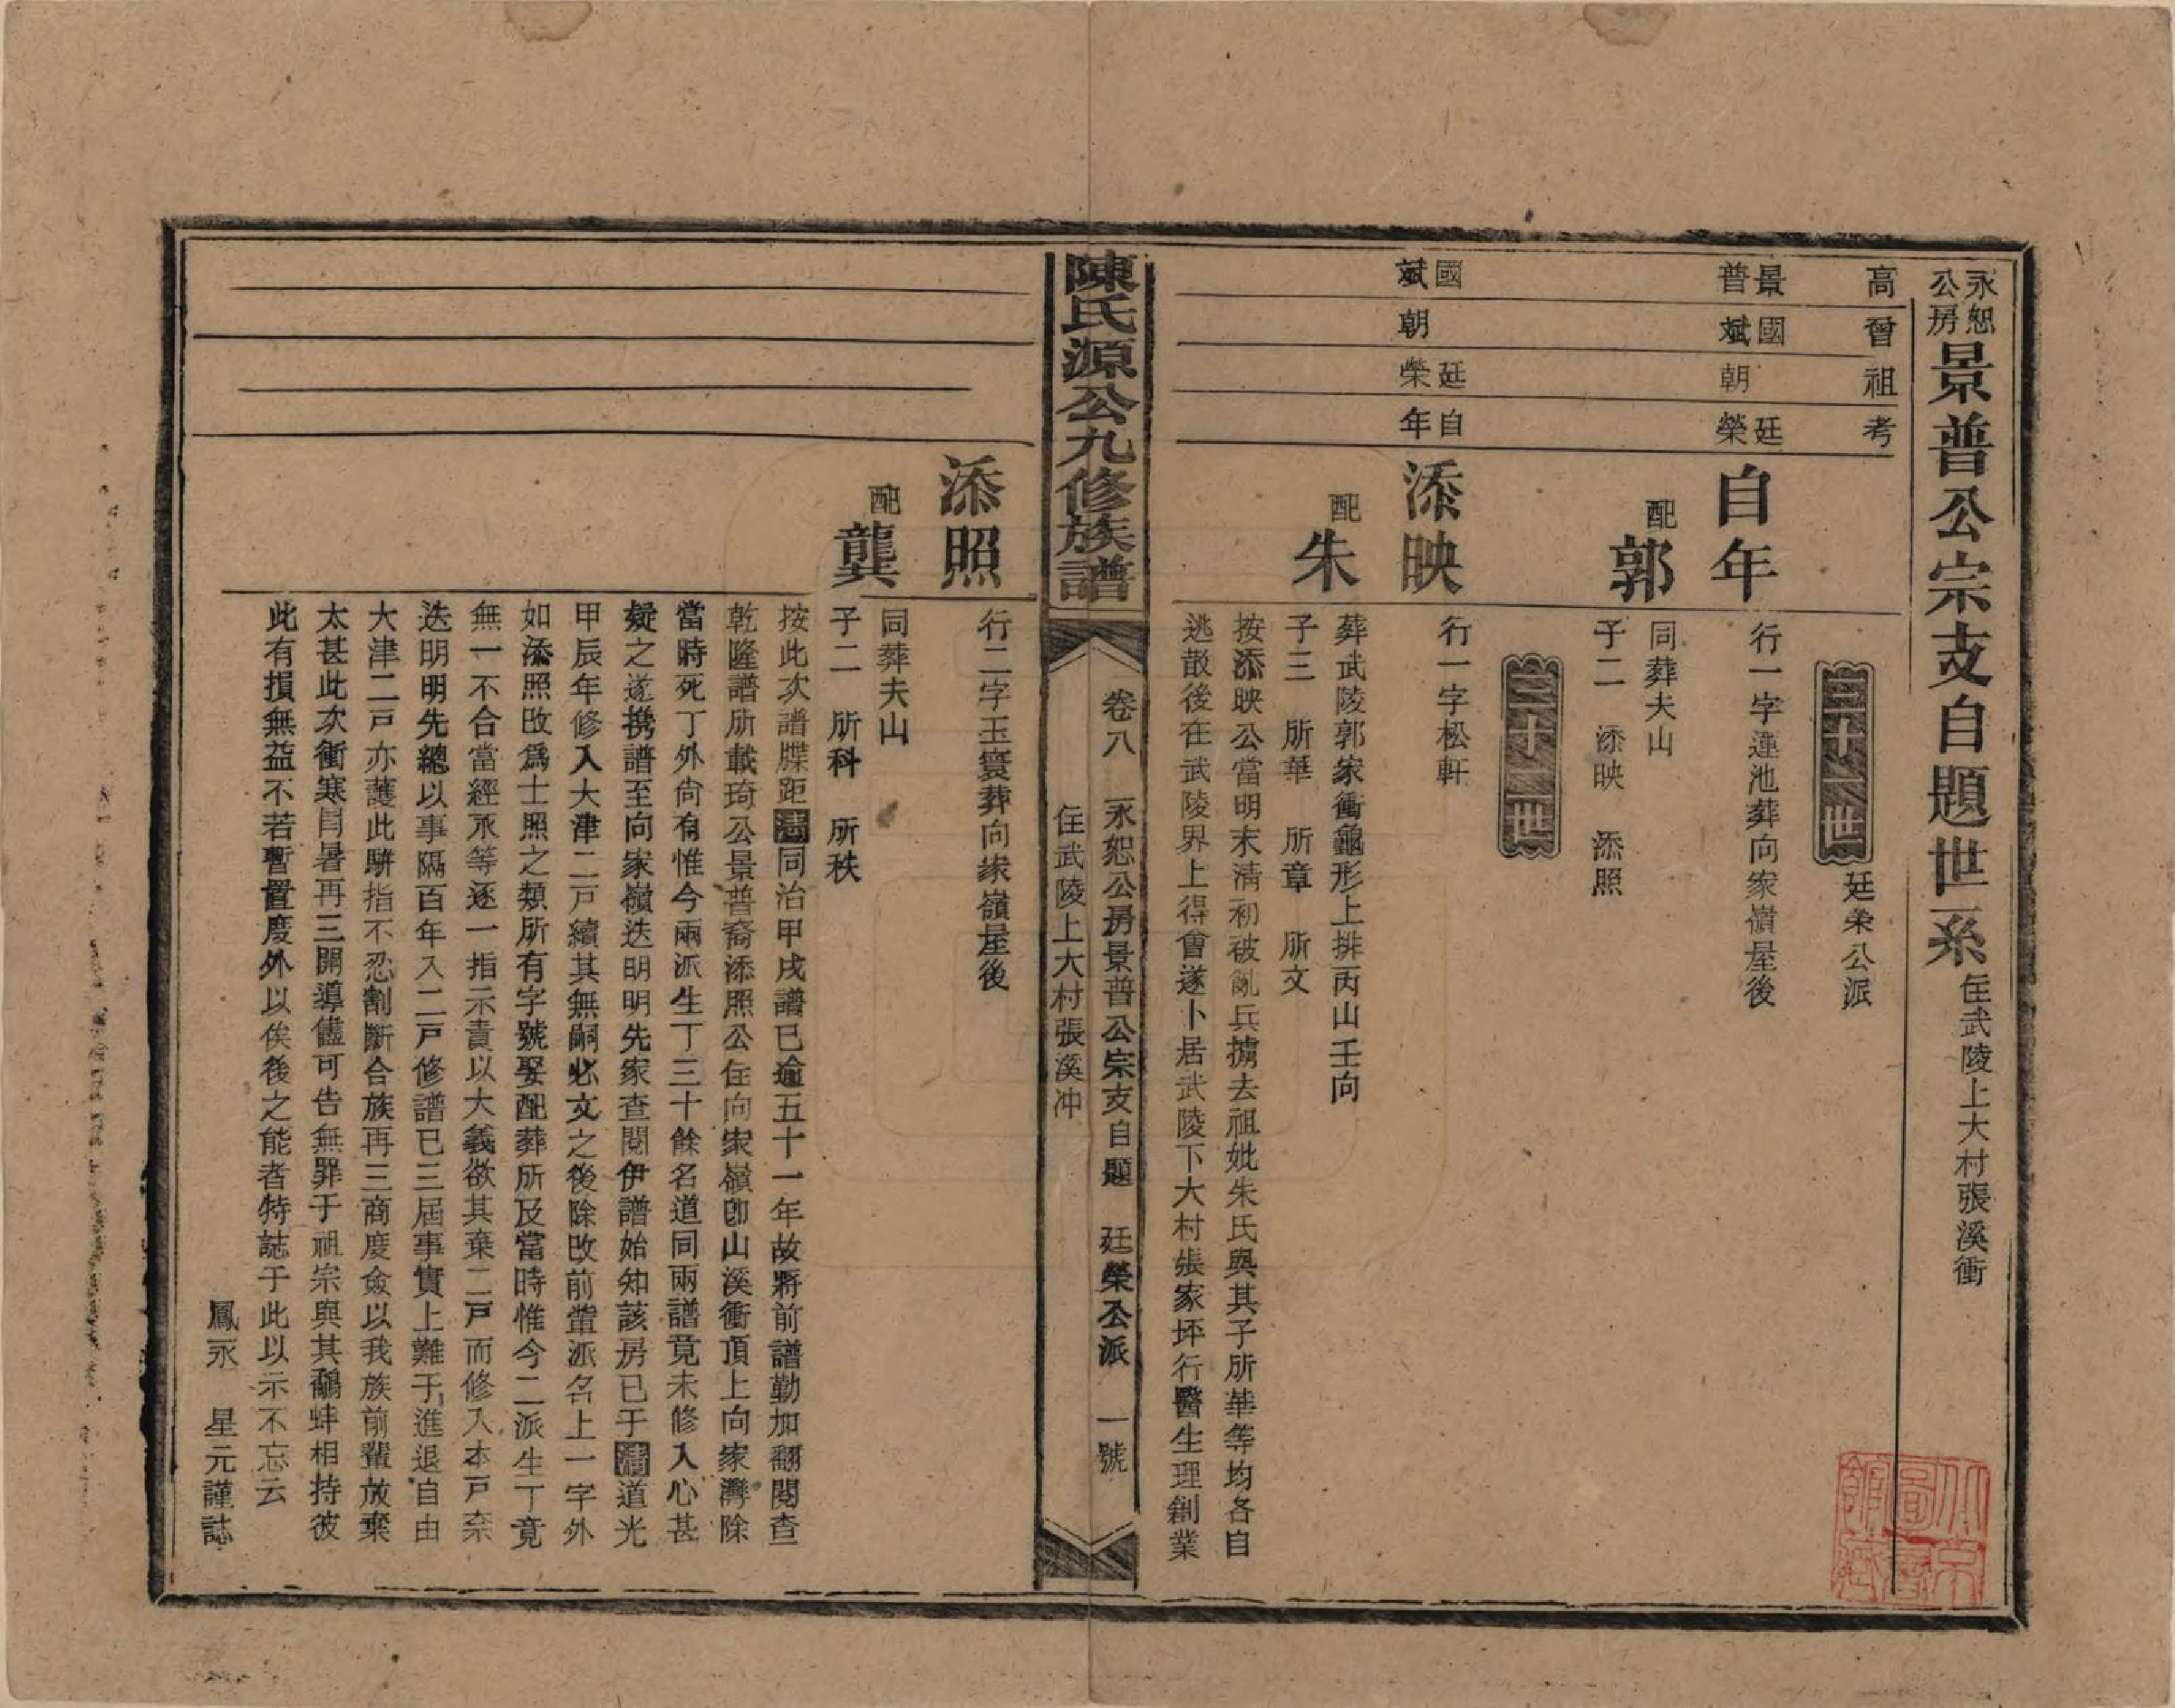 永恕公房景普公宗支自題世系 住武陵上大村張溪衝
高 曾 祖 考
三十一世 廷榮公派
景普 國斌 朝 廷榮
自年
行一字蓮池葬向家嶺屋後
配郭
同葬夫山
子二 添映 添照
三十二世
國斌 朝 廷榮 自年
添映
行一字松軒
配朱
葬武陵郭家衝龜形上排丙山壬向
子三 所華 所章 所文
按添映公當明末清初破亂兵擄去祖妣朱氏與其子所華等均各自
逃散後在武陵界上得會遂卜居武陵下大村張家坪行醫生理創業
陳氏源公九修族譜
卷八 永恕公房景普公宗支自題 廷榮公派 一號
住武陵上大村張溪冲
添照
行二字玉寰葬向家嶺屋後
配龔
同葬夫山
子二 所科 所秩
按此次譜牒距清同治甲戌譜已逾五十一年故將前譜勤加翻閱查
乾隆譜所載琦公景普裔添照公住向家嶺卽山溪衝頂上向家灣除
當時死丁外尙有惟今兩派生丁三十餘名道同兩譜竟未修入心甚
疑之遂携譜至向家嶺迭明明先家查閱伊譜始知該房已于清道光
甲辰年修入大津二戸續其無嗣必文之後除改前輩派名上一字外
如添照改爲士照之類所有字號娶配葬所及當時惟今二派生丁竟
無一不合當經永等逐一指示責以大義欲其棄二戸而修入本戸奈
迭明明先總以事隔百年入二戸修譜已三屆事實上難于進退自由
大津二戸亦護此騈指不忍割斷合族再三商度僉以我族前輩放棄
太甚此次衝寒冒暑再三開導儘可告無罪于祖宗與其鷸蚌相持彼
此有損無益不若暫置度外以俟後之能者特誌于此以示不忘云
鳳永 星元謹誌
北京圖書館藏